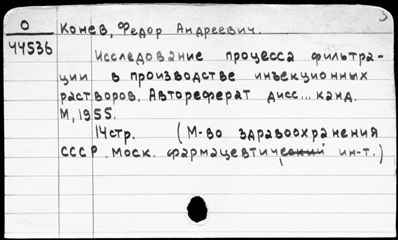 О Конев, Федор Андреевич.
44536
Исследование процесса фильтра-
ции в производстве инъекционных
растворов. Автореферат дисс... канд.
М, 1955.
14стр. (М-во здравоохранения
СССР. Моск. фармацевтический ин-т.)